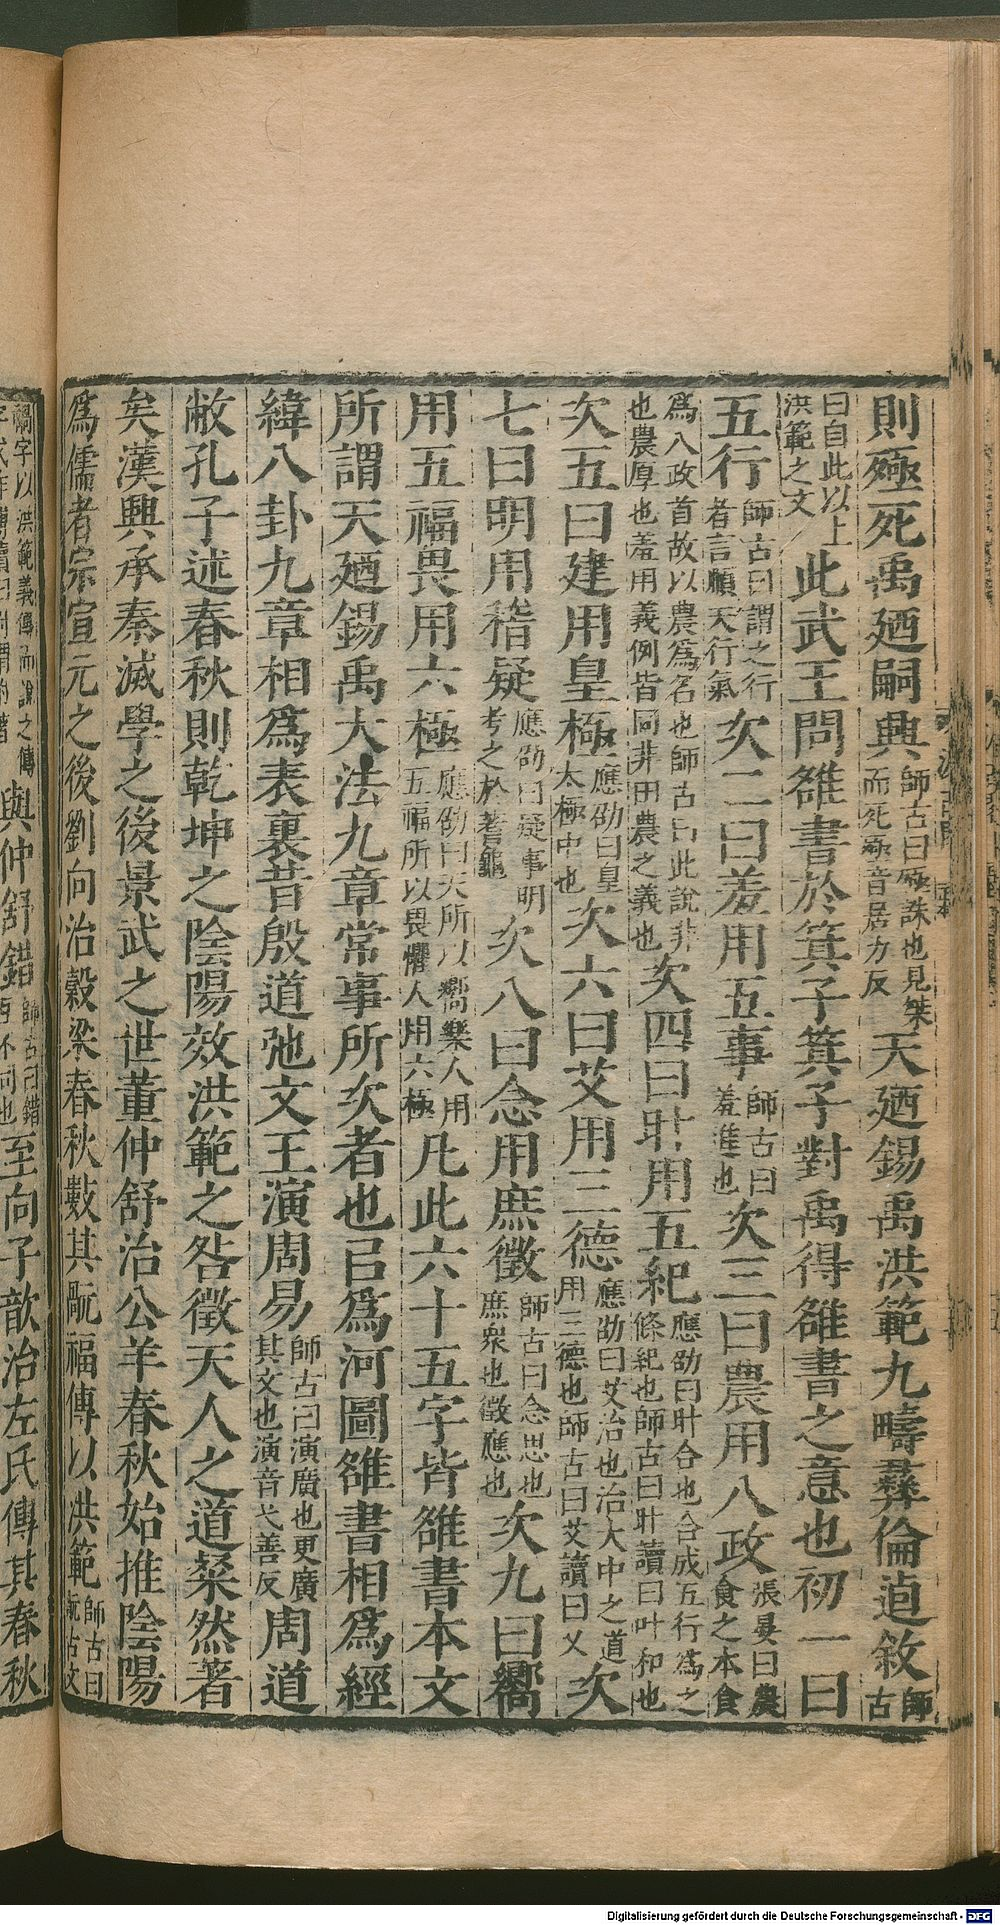 則殛死禹廼嗣興師古曰殛誅也見誅而死殛音居力反天廼錫禹洪範九疇彝倫逌敘師古
曰自此以上洪範之文此武王問雒書於箕子箕子對禹得雒書之意也初一曰
五行師古曰謂之行者言順天行氣次二曰羞用五事師古曰羞進也次三曰農用八政張晏曰農食之本食
為八政首故以農為名也師古曰此說非也農厚也羞用義例皆同非田農之義也次四曰旪用五紀應劭曰旪合也合成五行為之條紀也師古曰旪讀曰叶和也
次五曰建用皇極應劭曰皇太極中也次六曰艾用三德應劭曰艾治也治大中之道用三德也師古曰艾讀曰乂次
七曰明用稽疑應劭曰疑事明考之於蓍龜次八曰念用庶徵師古曰念思也庶衆也徵應也次九曰嚮
用五福畏用六極應劭曰天所以嚮樂人用五福所以畏懼人用六極凡此六十五字皆雒書本文
所謂天廼錫禹大法九章常事所次者也㠯爲河圖雒書相爲經
緯八卦九章相爲表裏昔殷道弛文王演周易師古曰演廣也更廣其文也演音弋善反周道
敝孔子述春秋則乾坤之陰陽效洪範之咎徵天人之道粲然著
矣漢興承秦滅學之後景武之世董仲舒治公羊春秋始推陰陽
爲儒者宗宣元之後劉向治穀梁春秋數其旤福傳以洪範師古曰旤古文
禍字以洪範義傳而說之傳
與仲舒錯師古曰錯互不同也至向子歆治左氏傳其春秋